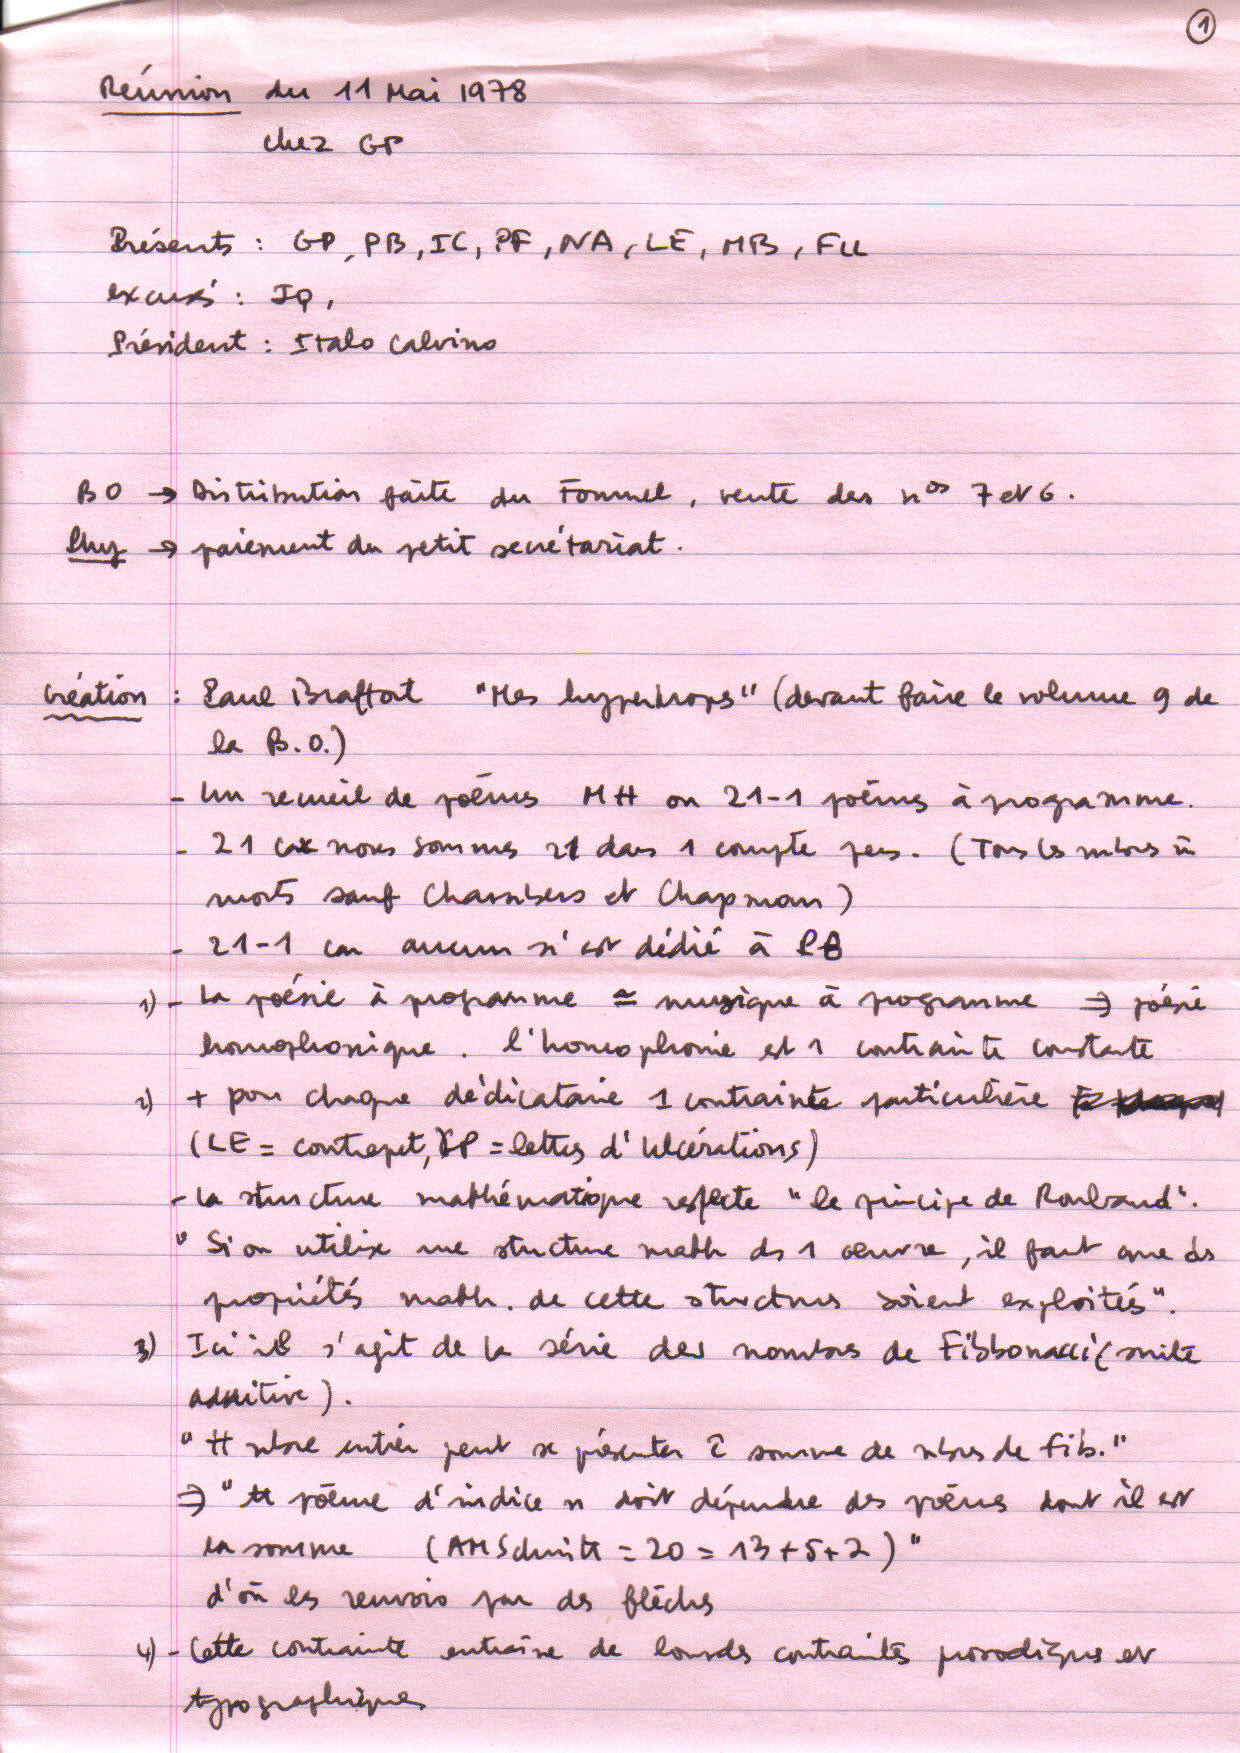 1
Réunion du 11 Mai 1978
chez GP
Présents : GP, PB, IC, PF, NA, LE, MB, FLL
excusé : JQ,
Président : Italo Calvino
BO → Distribution faite du Fournel, vente des nos 7 et 6.
→ paiement du petit secrétariat.
Création : Paul Braffort "Mes hypertropes" (devant faire le volume 9 de
la B.O.)
- Un recueil de poèmes MH ou 21-1 poèmes à programme.
- 21 car nous sommes 21 dans 1 compte pers. (Tous les mbres
morts sauf Chambers et Chapman)
- 21-1 car aucun n'est dédié à PB
1) - La poésie à programme ≃ musique à programme ⇒ poésie
homophonique. l'homophonie est 1 contrainte constante
2) + pour chaque dédicataire 1 contrainte particulière
(LE = contrepet, GP = lettres d'Ulcérations)
- La structure mathématique respecte "le principe de Roubaud".
"Si on utilise une structure math ds 1 œuvre, il faut que des
propriétés math. de cette structures soient exploités".
3) Ici il s'agit de la série des nombres de Fibbonacci (suite
additive).
"tt nbre entier peut se présenter c̄ somme de nbres de Fib."
⇒ "tt poème d'indice n doit dépendre des poèmes dont il est
la somme (AMSchmidt = 20 = 13+5+2)"
d'où les renvois par des flèches
4) - Cette contrainte entraîne de lourdes contraintes prosodiques et
typographiques